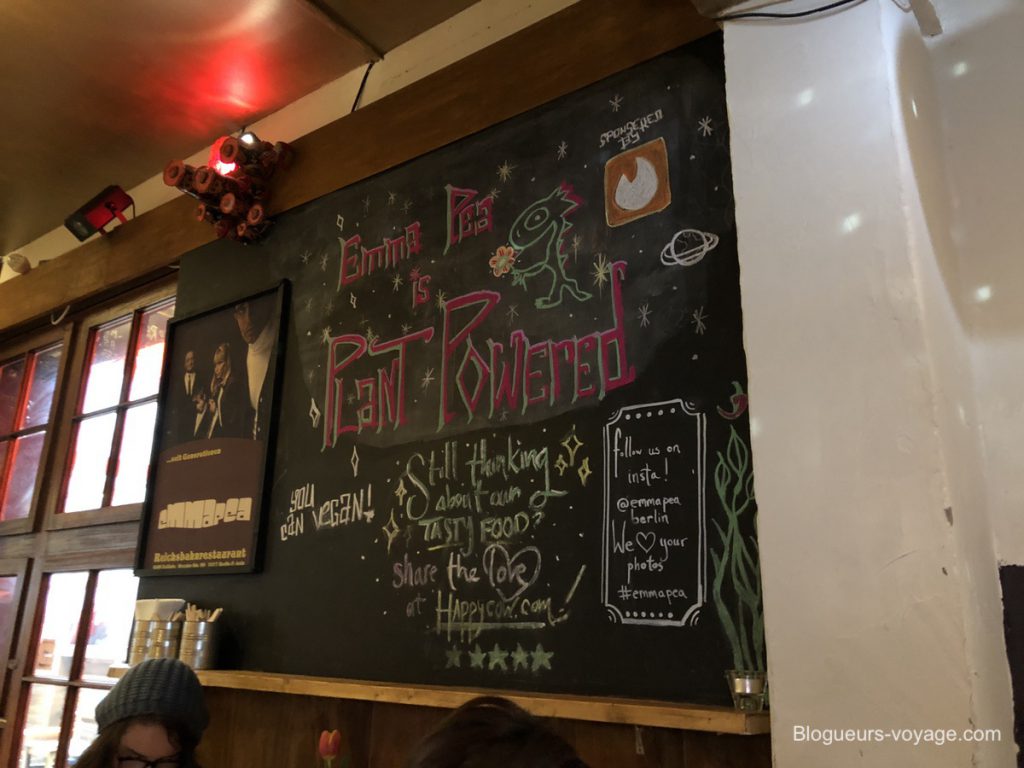 SPONSERED
BY
Emma Pea
is
Plant Powered
...seit Generationen
emmapea
Reichsbahnrestaurant
you
can vegan!
Still thinking
about our
TASTY FOOD?
share the love
at Happycow.com!
follow us on
insta!
@emmapea
berlin
We your
photos
#emmapea
Blogueurs-voyage.com